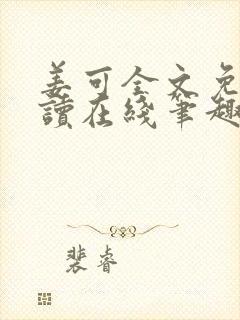 姜可全文免
讀在綫筆趣
裴睿